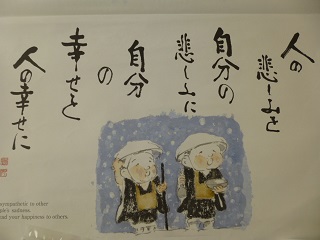 人の
悲しみを
自分の
悲しみに
自分
の
幸せを
人の幸せに
sympathetic to other
ple's sadness.
ead your happiness to others.